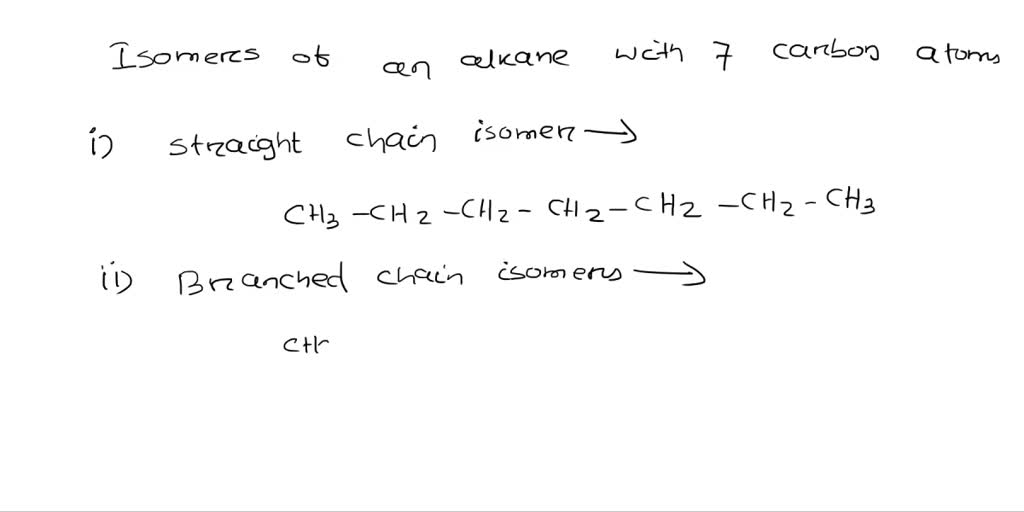 Isomers of an alkane with 7 carbon atoms
i) straight chain isomer →
CH3 -CH2 -CH2 - CH2 - CH2 -CH2 - CH3
ii) Branched chain isomers →
CH